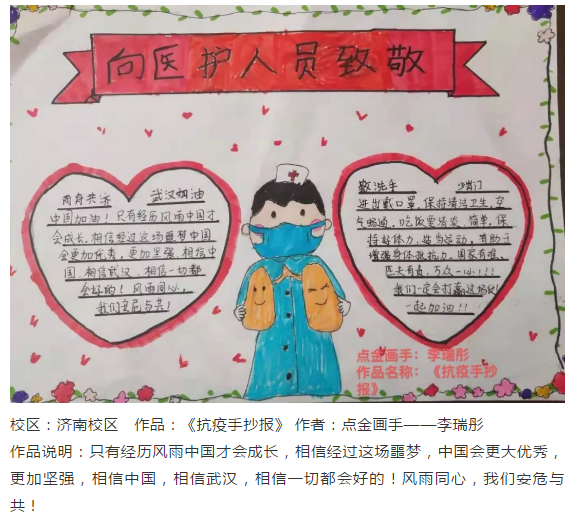 向医护人员致敬
同舟共济 武汉加油
中国加油！只有经历风雨中国才
会成长,相信经过这场噩梦中国
会更加优秀，更加坚强，相信中
国，相信武汉，相信一切都
会好的！风雨同心，
我们安危与共！
勤洗手 少出门
进出戴口罩，保持清洁卫生，空
气畅通，吃饭要清炎，简单，保
持好体力，适当运动，有助于
增强身体抵抗力，国家有难，
匹夫有责，万众一心！！！
我们一定会打赢这场仗
一起加油！！
点金画手：李瑞彤
作品名称：《抗疫手抄
报》
校区：济南校区 作品：《抗疫手抄报》 作者：点金画手——李瑞彤
作品说明：只有经历风雨中国才会成长，相信经过这场噩梦，中国会更大优秀，
更加坚强，相信中国，相信武汉，相信一切都会好的！风雨同心，我们安危与
共！